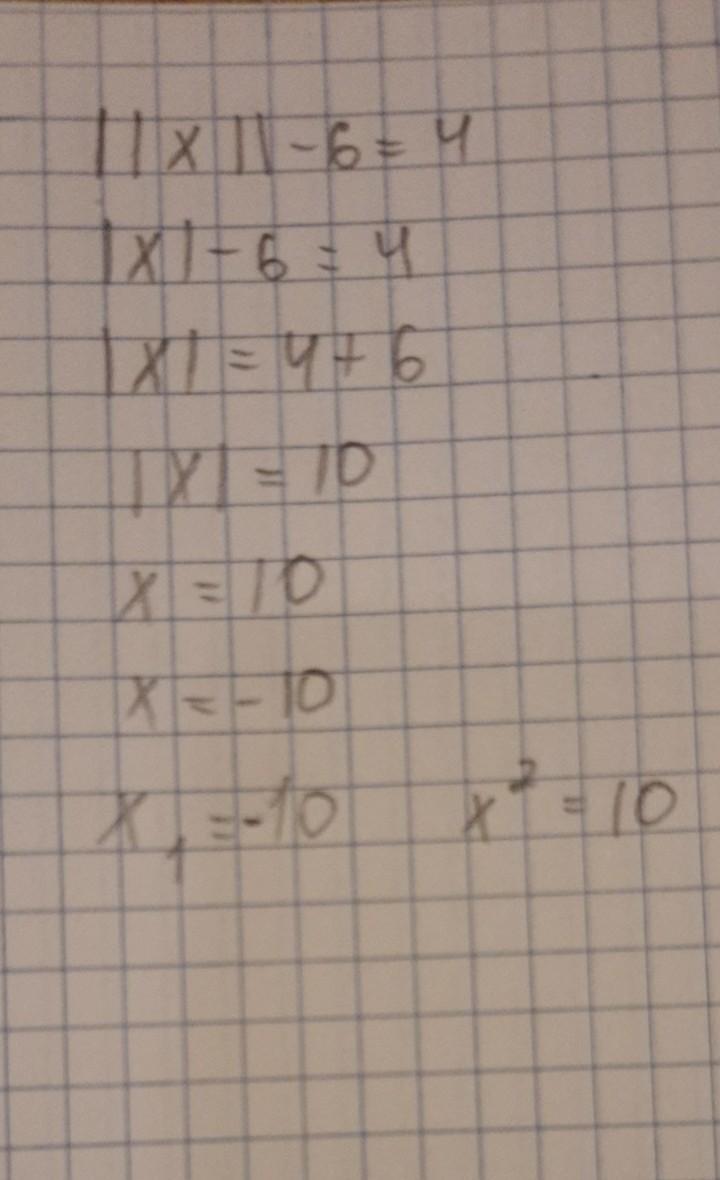 ||x||-6=4
|x|-6=4
|x|=4+6
|x|=10
x=10
x=-10
x₁=-10 x²=10